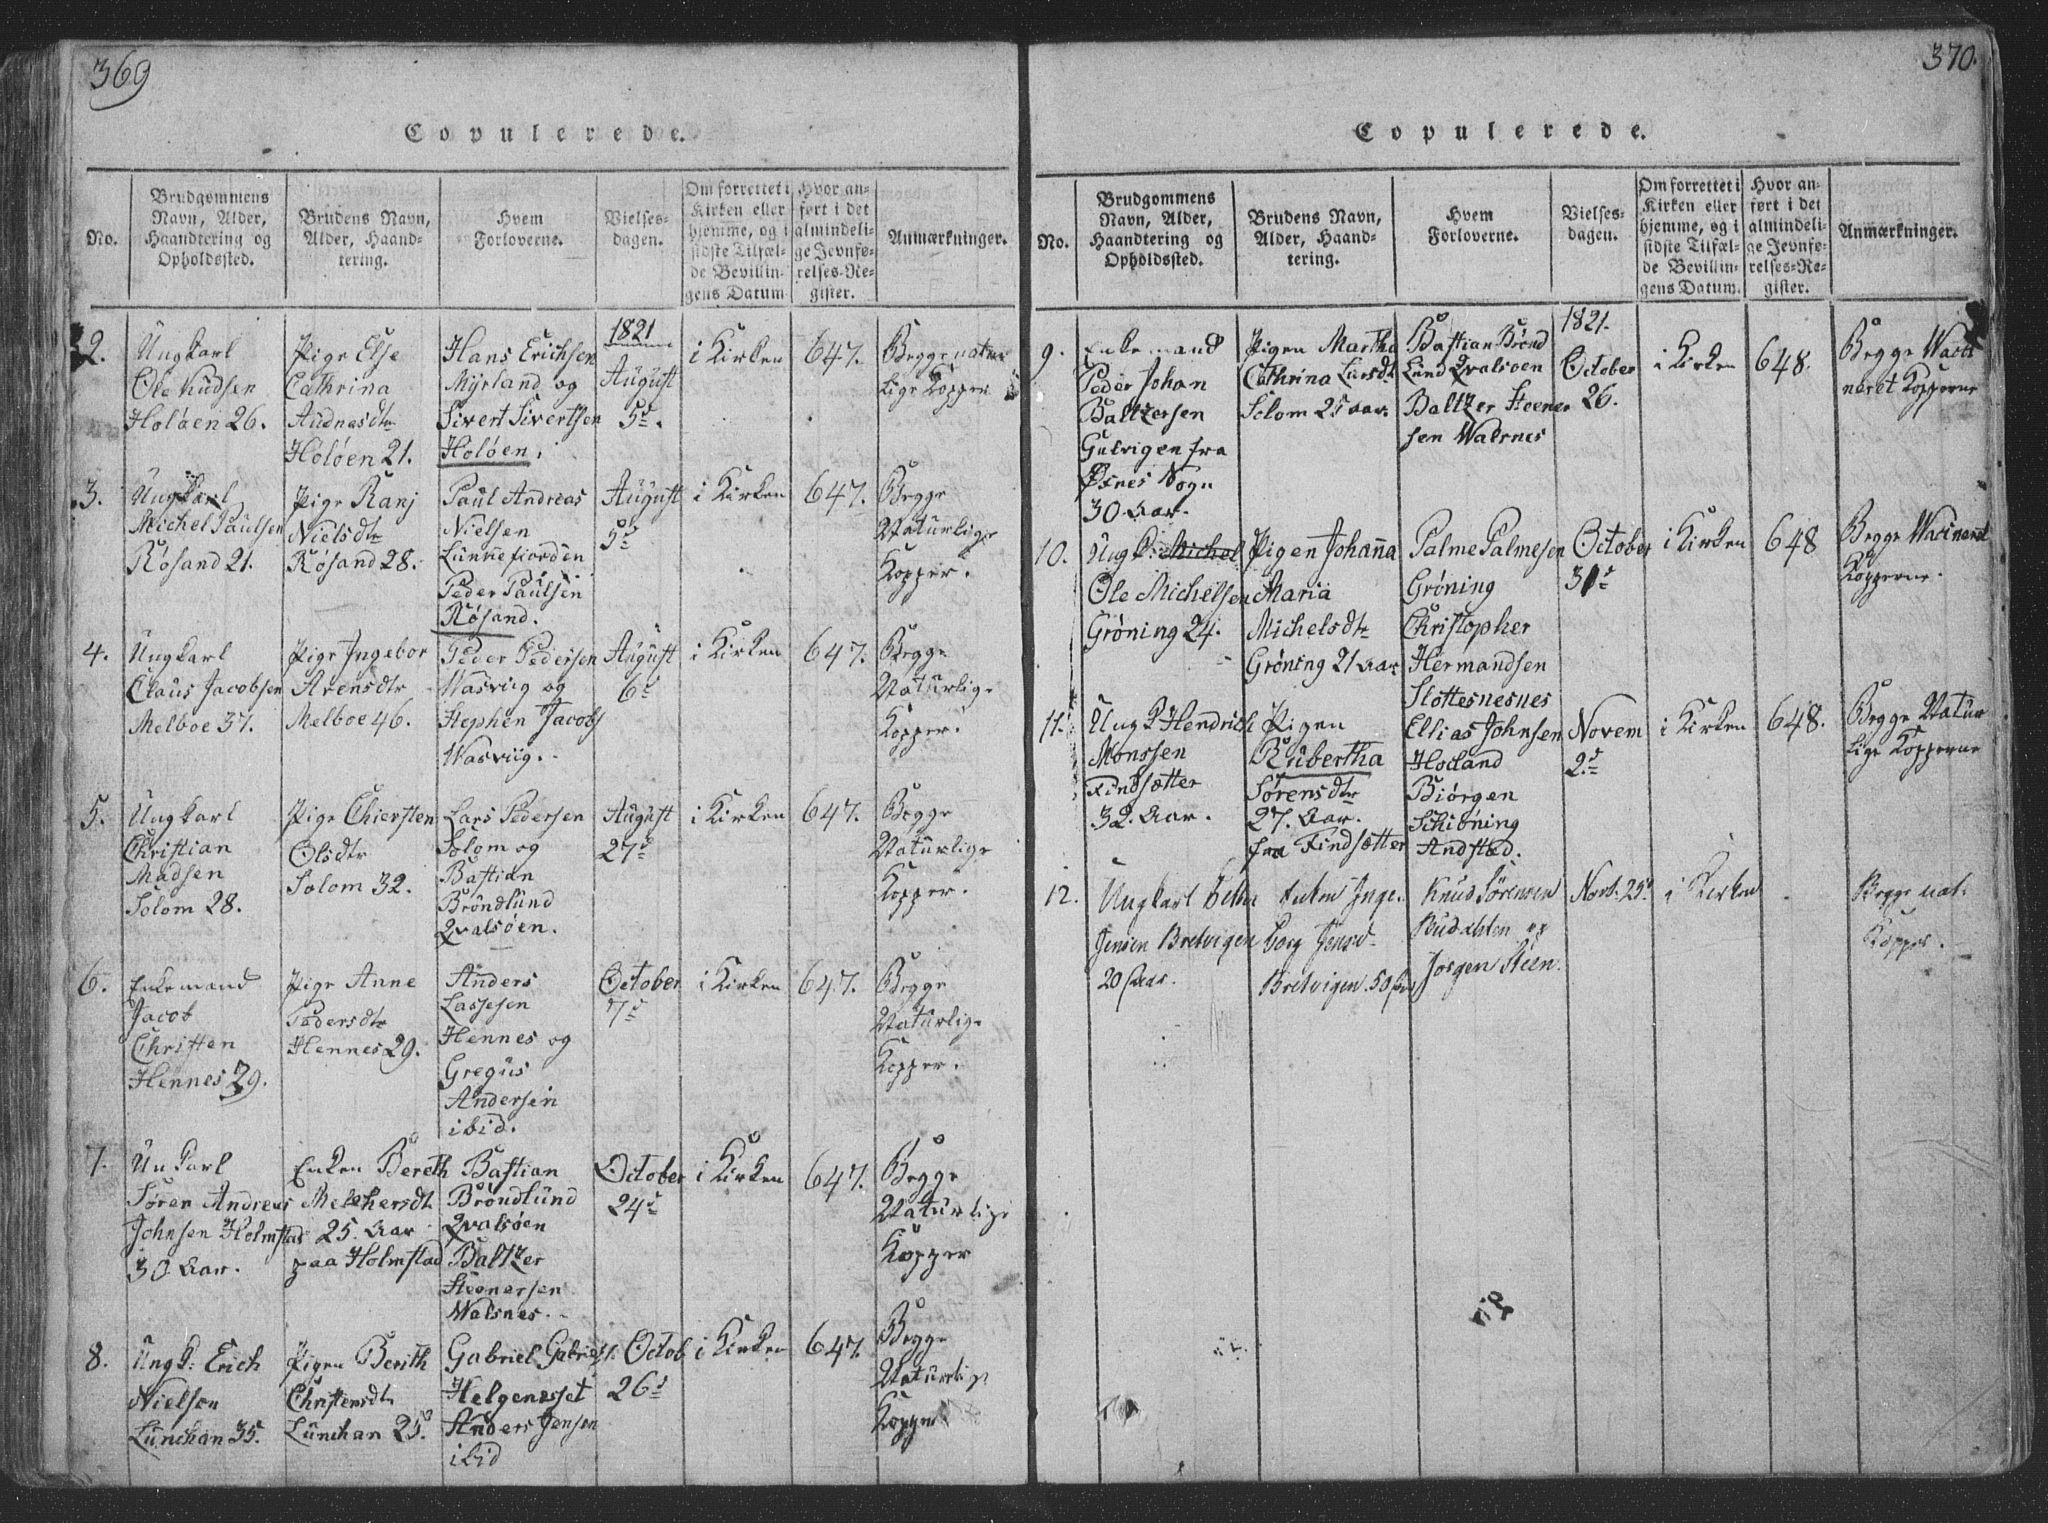 369
Copulerede.
No.
Brudgommens
Navn, Alder,
Haandtering og
Opholdssted.
Brudens Navn,
Alder, Haand-
tering.
Hvem
Forloverne.
Vielses-
dagen.
Om forrettet i
Kirken eller
hjemme, og i
sidste Tilfæl-
de Bevillin-
gens Datum
Hvor an-
ført i det
almindeli-
ge Jevnfø-
relses-Re-
gister.
Anmærkninger.
2.
Ungkarl
Ole Knudsen
Holøen 26.
Pige Else
Cathrina
Audnasdtr
Holøen 21.
Hans Erichsen
Myrland og
Sivert Sivertsen
Holøen.
1821
August
5d.
i Kirken
647.
Begge natur
lige Kopper
3.
Ungkarl
Michel Paulsen
Røsand 21.
Pige Ranj
Nielsdtr
Røsand 28.
Paul Andreas
Nielsen
Lunnefiorden
Peder Paulsen
Røsand.
August
5d
i Kirken
647.
Begge
Naturlige
Kopper.
4.
Ungkarl
Claus Jacobsen
Melboe 37.
Pige Ingebor
Arensdtr
Melboe 46.
Peder Pedersen
Wasviig og
Stephen Jacobs
Wasviig.
August
6d
i Kirken
647.
Begge
Naturlige
Kopper.
5.
Ungkarl
Christian
Madsen
Solom 28.
Pige Chiersten
Olsdtr
Solom 32.
Lars Pedersen
Solom og
Bastian
Brøndlund
Qvalsøen.
August
27d
i Kirken
647.
Begge
Naturlige
Kopper.
6.
Enkemand
Jacob
Christen
Hennes 29.
Pige Anne
Pedersdtr
Hennes 29.
Anders
Lassesen
Hennes og
Gregus
Andersen
ibid.
October
7d
i Kirken
647.
Begge
Naturlige
Kopper.
7.
Unkarl
Søren Andreas
Johnsen Holmstad
30 Aar.
Enken Bereth
Melchersdt
25. Aar
paa Holmstad
Bastian
Brøndlund
Qvalsøen
Baltzer
Steenersen
Walsnes.
October
24d
i Kirken
647.
Begge
Naturlige
Kopper
8.
Ungk: Erich
Nielsen
Lunchan 35.
Pigen Berith
Christensdt
Lunchan 25.
Gabriel Gabriels
Helgenesset
Anders Jensen
ibid
Octob
26d
i Kirken
647.
Begge
Naturlig
Kopper
370.
Copulerede.
No.
Brudgommens
Navn, Alder,
Haandtering og
Opholdssted.
Brudens Navn,
Alder, Haand-
tering.
Hvem
Forloverne.
Vielses-
dagen.
Om forrettet i
Kirken eller
hjemme, og i
sidste Tilfæl-
de Bevillin-
gens Datum.
Hvor an-
ført i det
almindeli-
ge Jevnfø-
relses-Re-
gister.
Anmærkninger.
9.
Enkemand
Peder Johan
Baltzersen
Gulvigen fra
Øxnes Sogn
30 Aar.
Pigen Martha
Cathrina Larsdt
Solom 25 Aar.
Bastian Brønd
Lund Qvalsøen
Baltzer Steener
sen Walsnes
1821.
October
26.
i Kirken
648.
Begge Wacci
neret Kopperne
10.
Ungk: Michel
Ole Michelsen
Grøning 24.
Pigen Johanna
Maria
Michelsdtr
Grøning 21 Aar
Palme Palmesen
Grøning
Christopher
Hermandsen
Slottesnesnes
October
31d
i Kirken
648
Begge Wacinerit
Kopperne.
11.
Ungk Hendrich
Monssen
Findsætter
32. Aar.
Pigen
Rubertha
Sørensdtr
27. Aar.
fra Findsætter
Ellias Johnsen
Hocland
Biørgen
Schiøning
Andstad.
Novem
2d
i Kirken
648.
Begge Natur
lige Kopperne
12.
Ungkarl
Jensen Bretvigen
20 Aar.
Enken Inge-
borg Jensd.
Bretvigen. 50
Knud Sørensen
og
Jørgen Steen.
Novb. 25d
i Kirken
Begge nat.
Kopper.